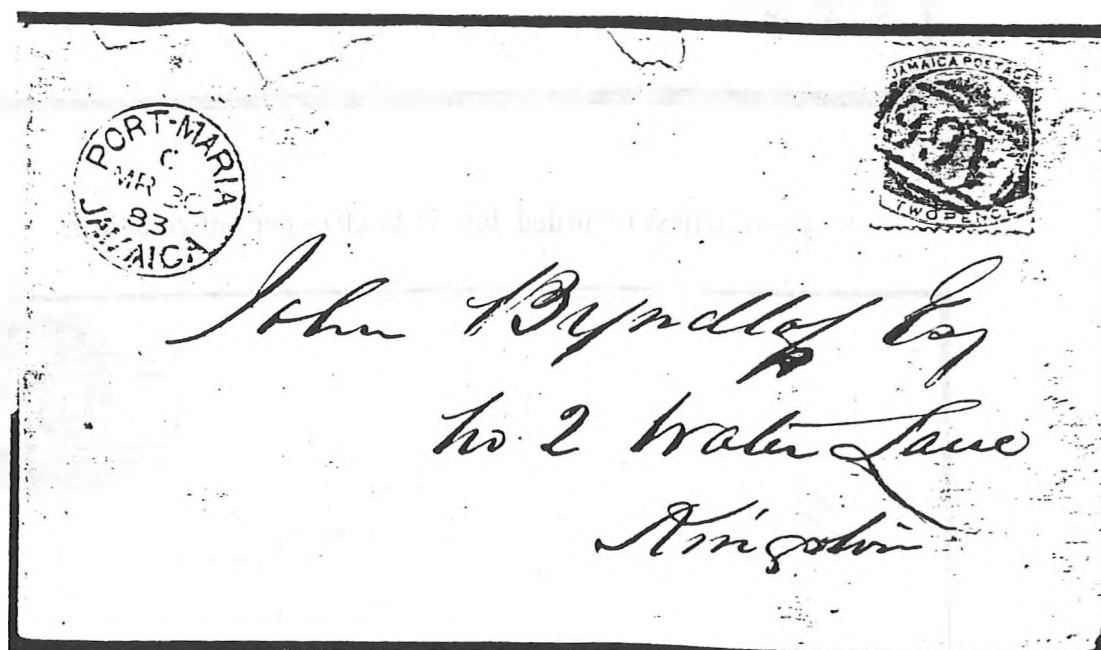 PORT-MARIA
C
MR
83
JAMAICA
JAMAICA POSTAGE
TWOPENCE
John Byndloss Esq
No. 2 Water Lane
Kingston